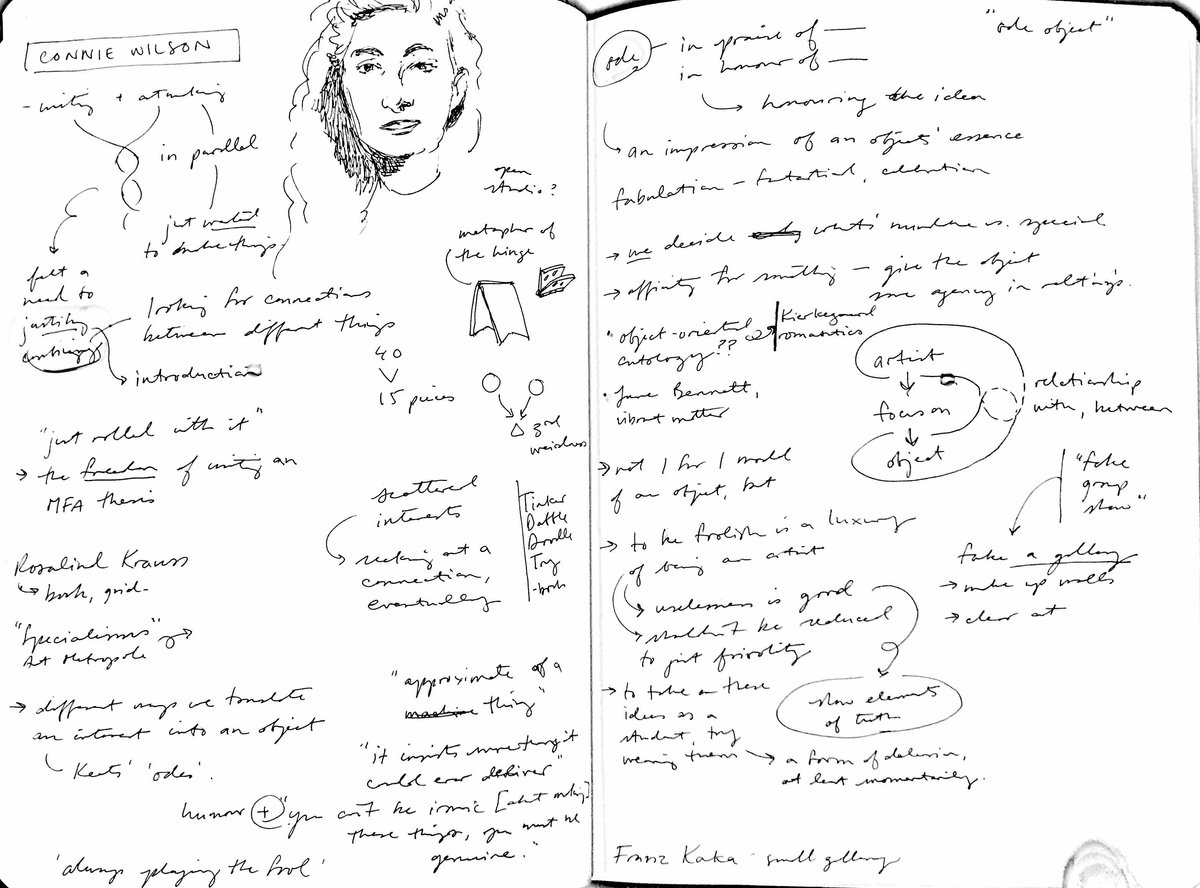 CONNIE WILSON
- writing + artmaking
in parallel
just wanted
to make things
felt a
need to
justify
combining
looking for connections
between different things
introduction
40
15 pieces
open
studio?
metaphor of
the hinge
3rd
weirdness
"just rolled with it"
→ the freedom of writing an
MFA thesis
scattered
interests
seeking out a
connection,
eventually
Tinker
Dattle
Doodle
Try
- book
Rosalind Krauss
book, grid.
"Specialisms"
Art Metropole
→ different ways we translate
an interest into an object
Keats' 'odes'.
"approximate of a
machine thing"
"it insists more than it
could ever deliver"
humour + "you can't be ironic [about making]
these things, you must be
genuine."
'always playing the fool'
ode
in praise of —
in honour of —
"ode object"
honouring the idea
an impression of an objects' essence
fabulation - fantastical, celebration
→ we decide what's mundane vs. special
→ affinity for something — give the object
some agency in relating's.
"object-oriented
ontology"??
Kierkegaard
romantics
• Jane Bennett,
vibrant matter
artist
focus on
object
relationship
with, between
→ not 1 for 1 model
of an object, but
→ to be foolish is a luxury
of being an artist
uselessness is good
→ shouldn't be reduced
to just frivolity
"fake
group
show"
fake a gallery
→ make up walls
→ clear at
→ to take on these
ideas as a
student, try
wearing them
show elements
of truth
→ a form of delusion,
at least momentarily.
Franz Kaka - small gallery